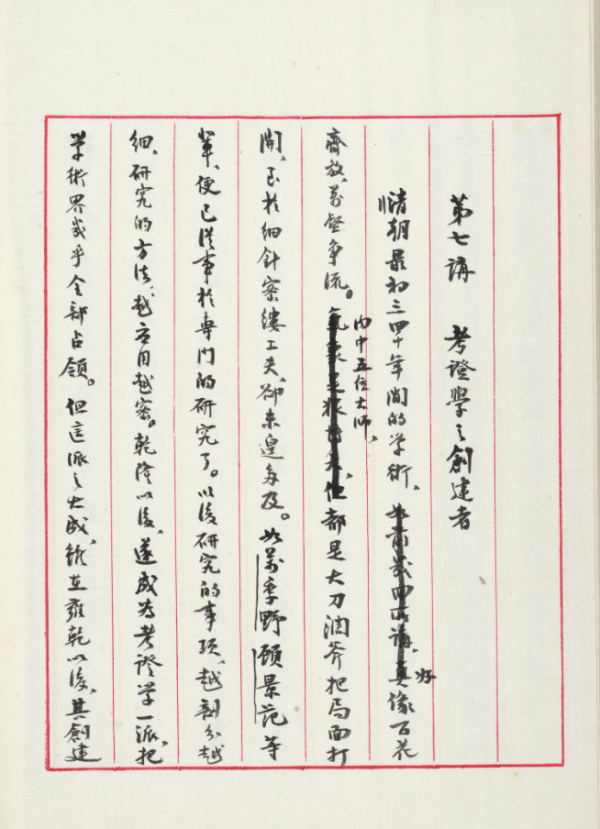 第七講　考證學之創建者
清朝最初三四十年間的学術、好像百花
齊放、萬壑爭流。內中五位大师、都是大刀濶斧把局面打
開、至於細針密縷工夫、卻未遑多及。如萬季野顧景范等
輩、便已從事於專門的研究了。以後研究的事項、越剖分越
細、研究的方法、越应用越密。乾隆以後、遂成为考證学一派、把
学術界幾乎全部占領。但這派之大成、雖在雍乾以後、其創建